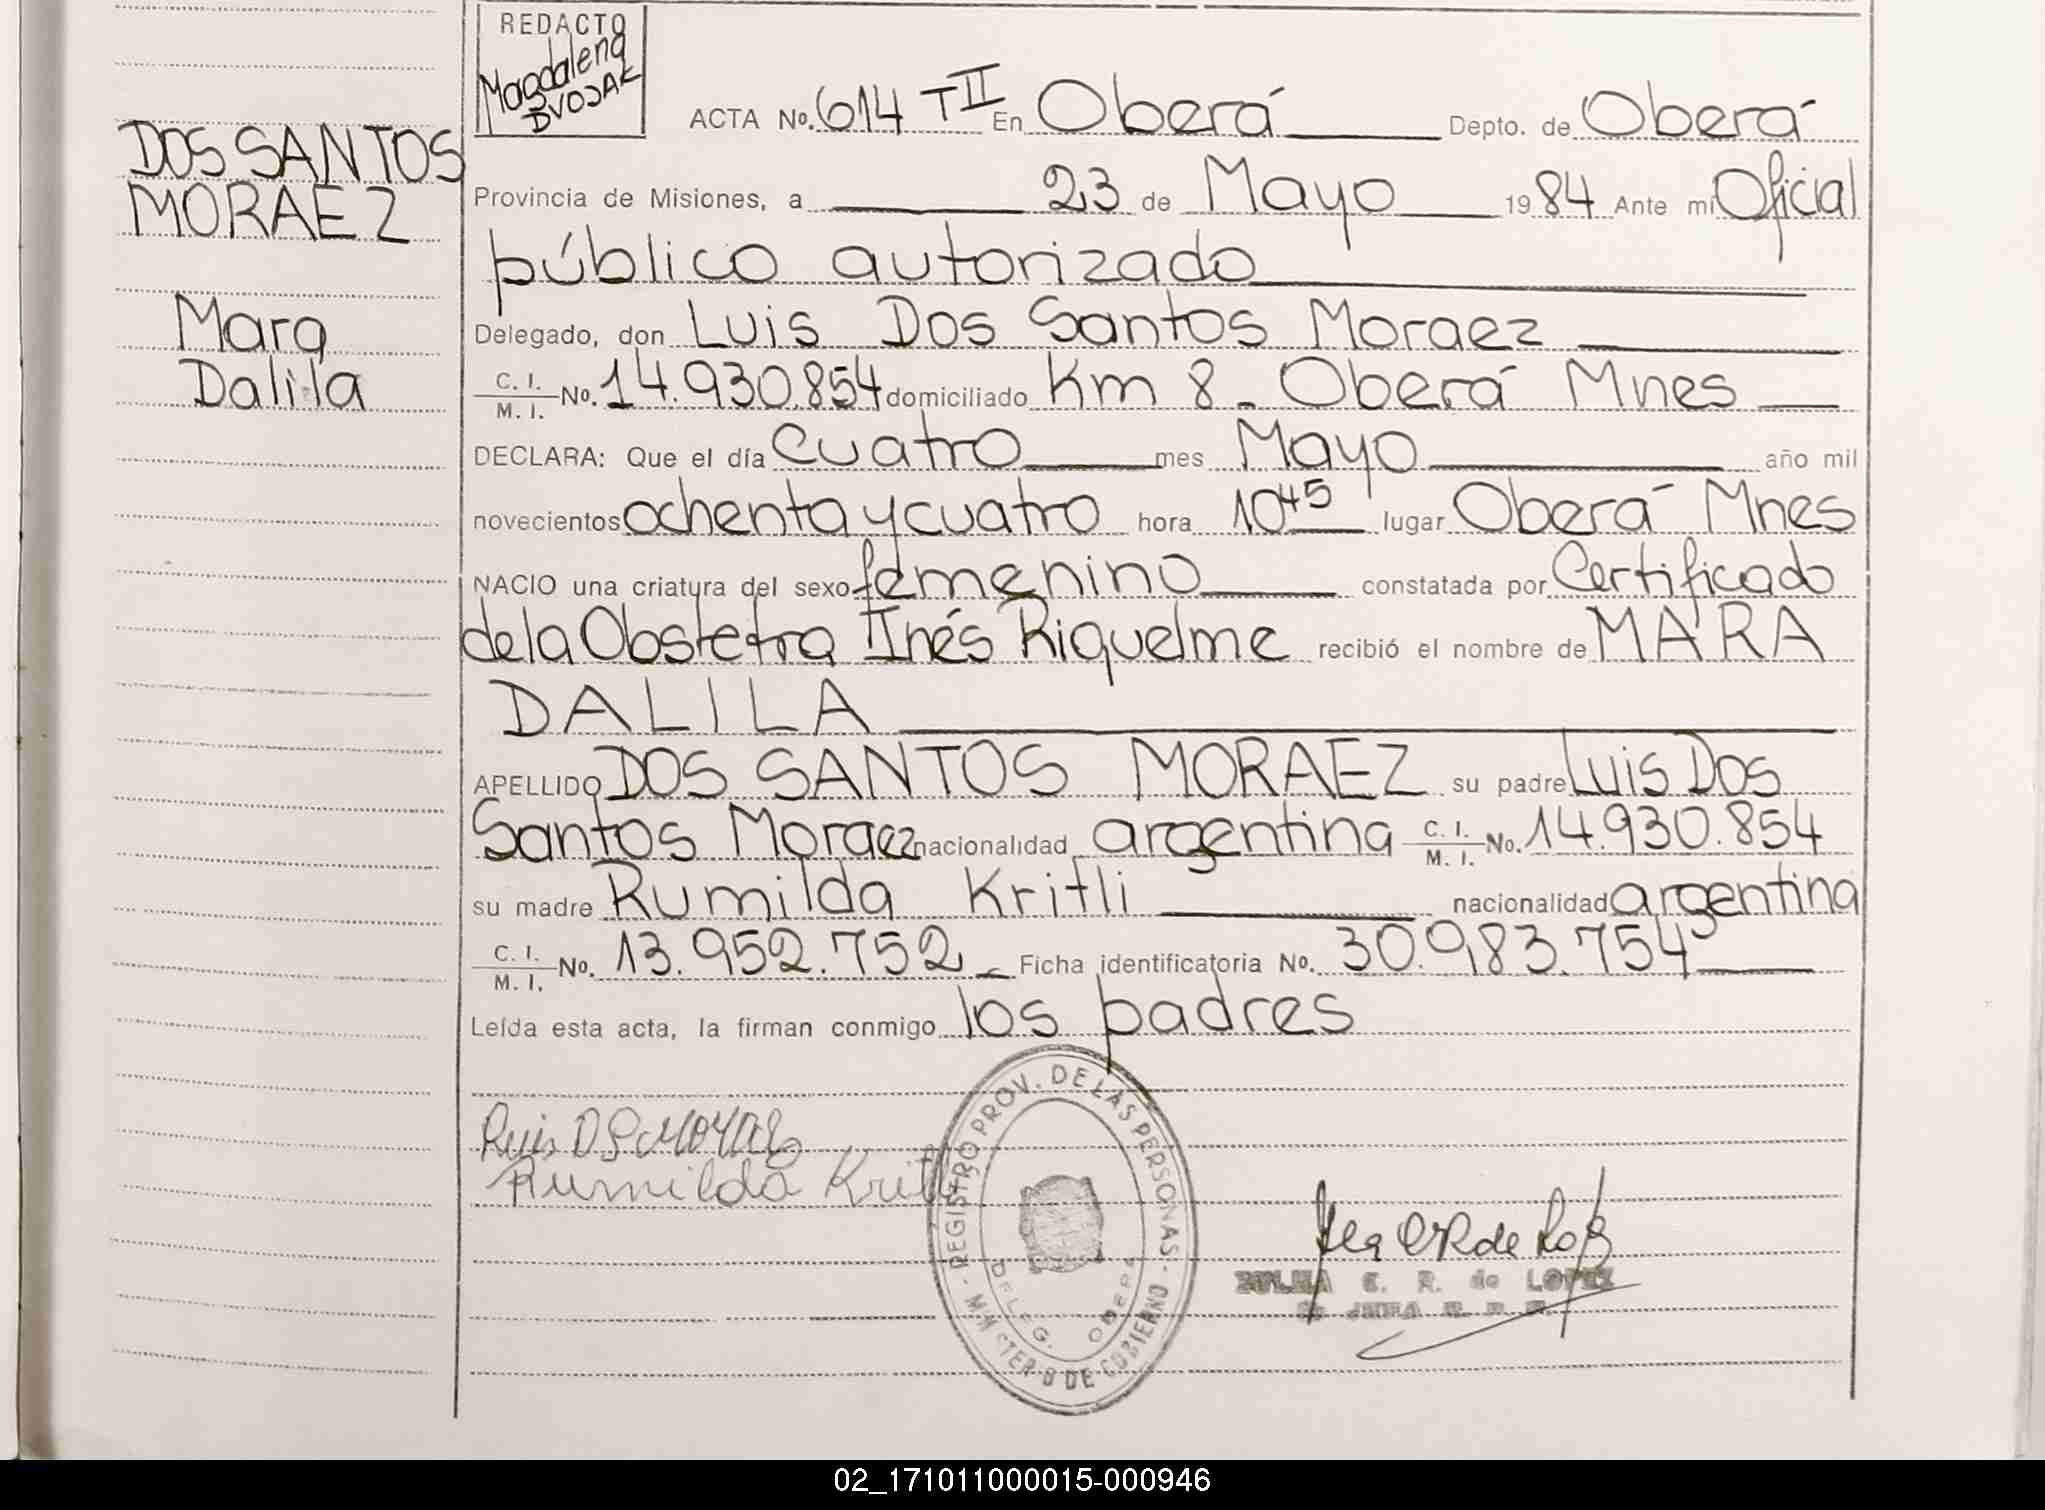 REDACTO
Magdalena
DVOJAK
ACTA No. 614 TII En Oberá Depto. de Oberá
DOS SANTOS
MORAEZ
Mara
Dalila
Provincia de Misiones, a 23 de Mayo 1984 Ante mí Oficial
público autorizado
Delegado, don Luis Dos Santos Moraez
C. I. / M. I. No. 14.930.854 domiciliado Km 8 - Oberá Mnes
DECLARA: Que el día cuatro mes Mayo año mil
novecientos ochenta y cuatro hora 10 45 lugar Oberá Mnes
NACIO una criatura del sexo femenino constatada por Certificado
de la Obstetra Inés Riquelme recibió el nombre de MARA
DALILA
APELLIDO DOS SANTOS MORAEZ su padre Luis Dos
Santos Moraez nacionalidad argentina C. I. / M. I. No. 14.930.854
su madre Rumilda Kritli nacionalidad argentina
C. I. / M. I. No. 13.952.752 Ficha identificatoria No. 30.983.754
Leída esta acta, la firman conmigo los padres
Rumilda
REGISTRO PROV. DE LAS PERSONAS
DELEG. OBERA
DE GOBIERNO
C. R. de LOPEZ
02_171011000015-000946